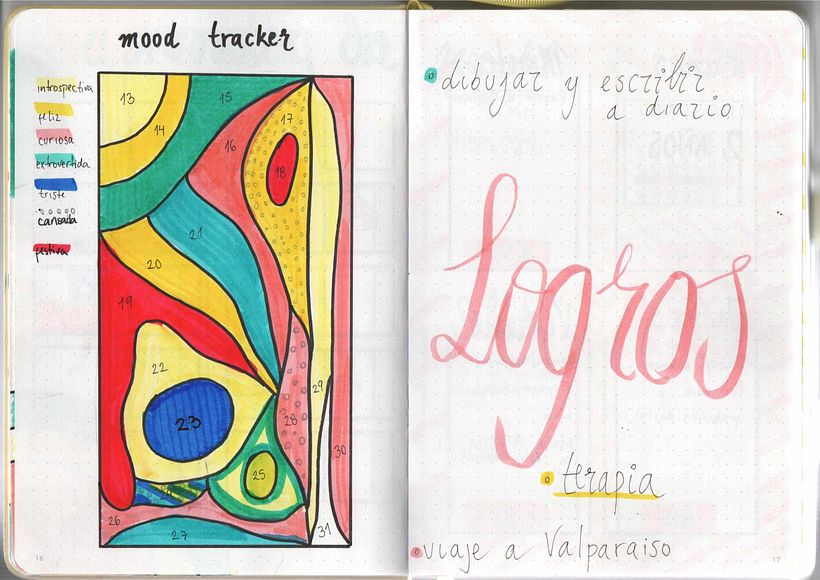 mood tracker
introspectiva
feliz
curiosa
extrovertida
triste
cansada
festiva
13
14
15
16
17
18
21
20
19
22
23
29
28
30
25
26
27
31
16
dibujar y escribir
a diario
Logros
terapia
viaje a Valparaiso
17